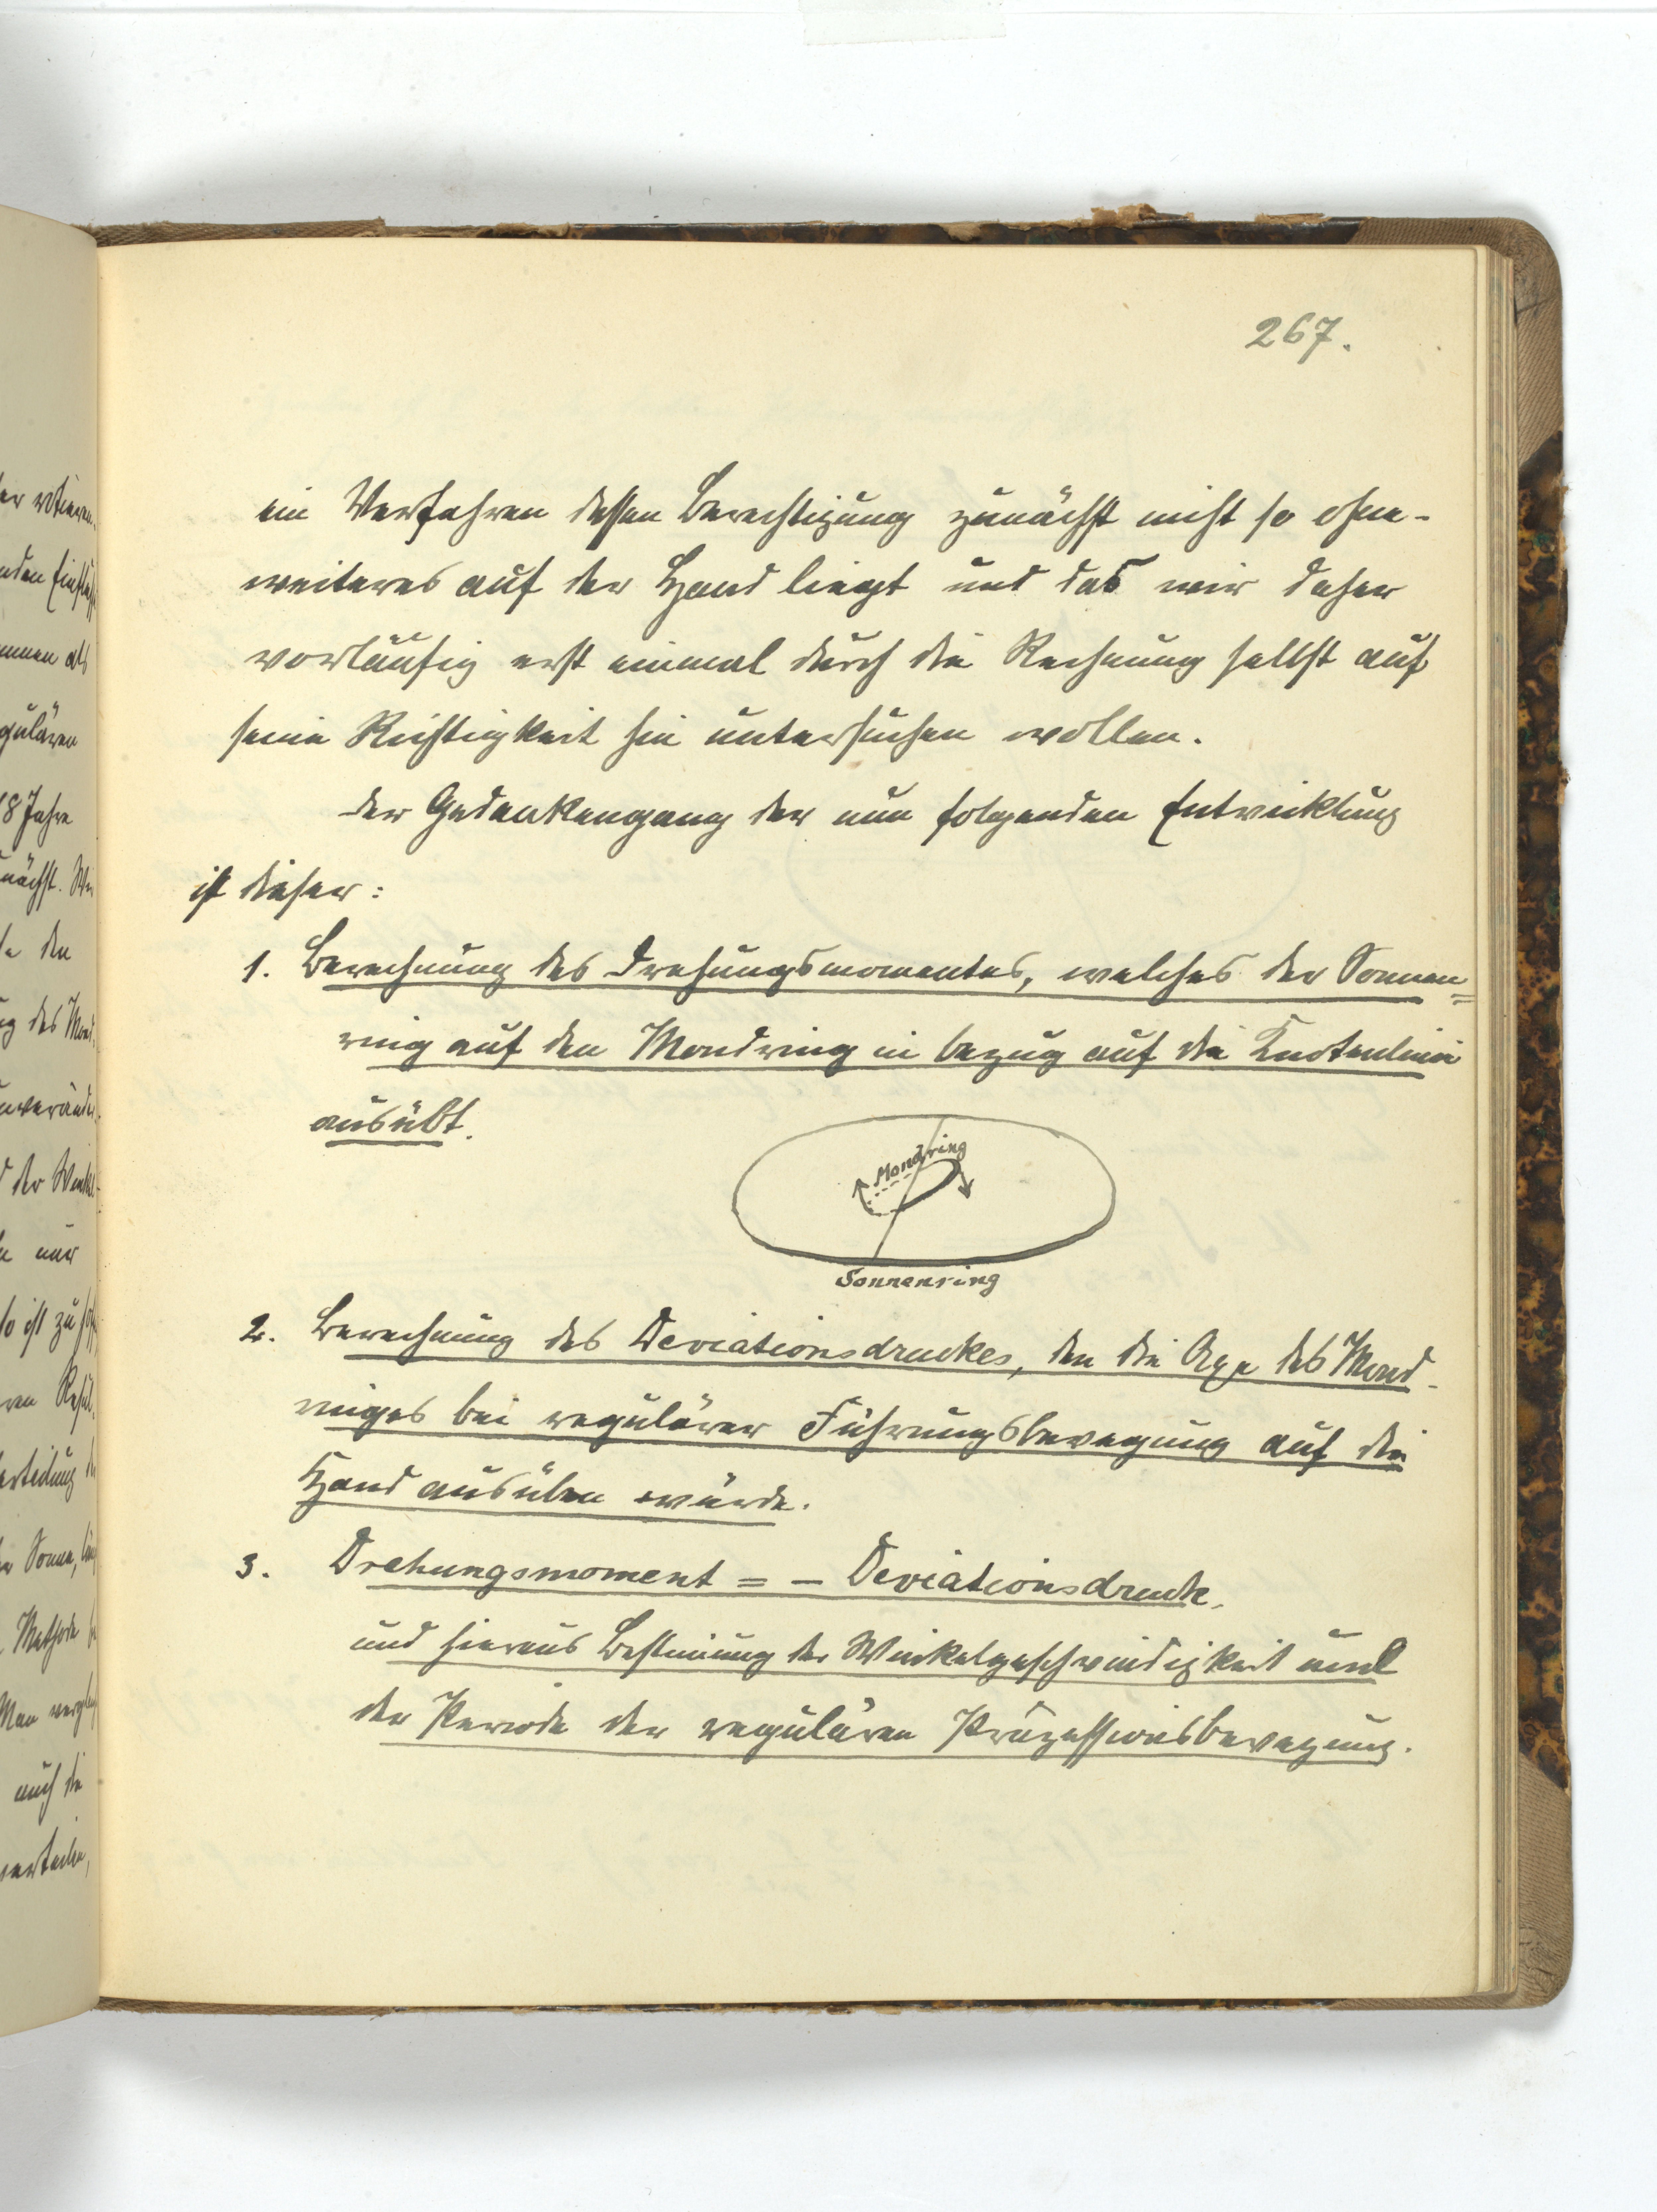 267.
ein Verfahren dessen Berechtigung zunächst nicht so ohne-
weiteres auf der Hand liegt und das wir daher
vorläufig erst einmal durch die Rechnung selbst auf
seine Richtigkeit hin untersuchen wollen.
Der Gedankengang der nun folgenden Entwicklung
ist dieser:
1. Berechnung des Drehungsmomentes, welches der Sonnen=
ring auf den Mondring in bezug auf die Knotenlinie
ausübt.
Mondring
Sonnenring
2. Berechnung des Deviationsdruckes, den die Axe des Mond-
ringes bei regulärer Führungsbewegung auf die
Hand ausüben würde.
3. Drehungsmoment = - Deviationsdruck,
und hieraus Bestimmung der Winkelgeschwindigkeit und
der Periode der regulären Präzessionsbewegung.
18 Jahre
nächst.
den
des Mond
nur
ist zu
Sonne,
Methode
Man
auch die